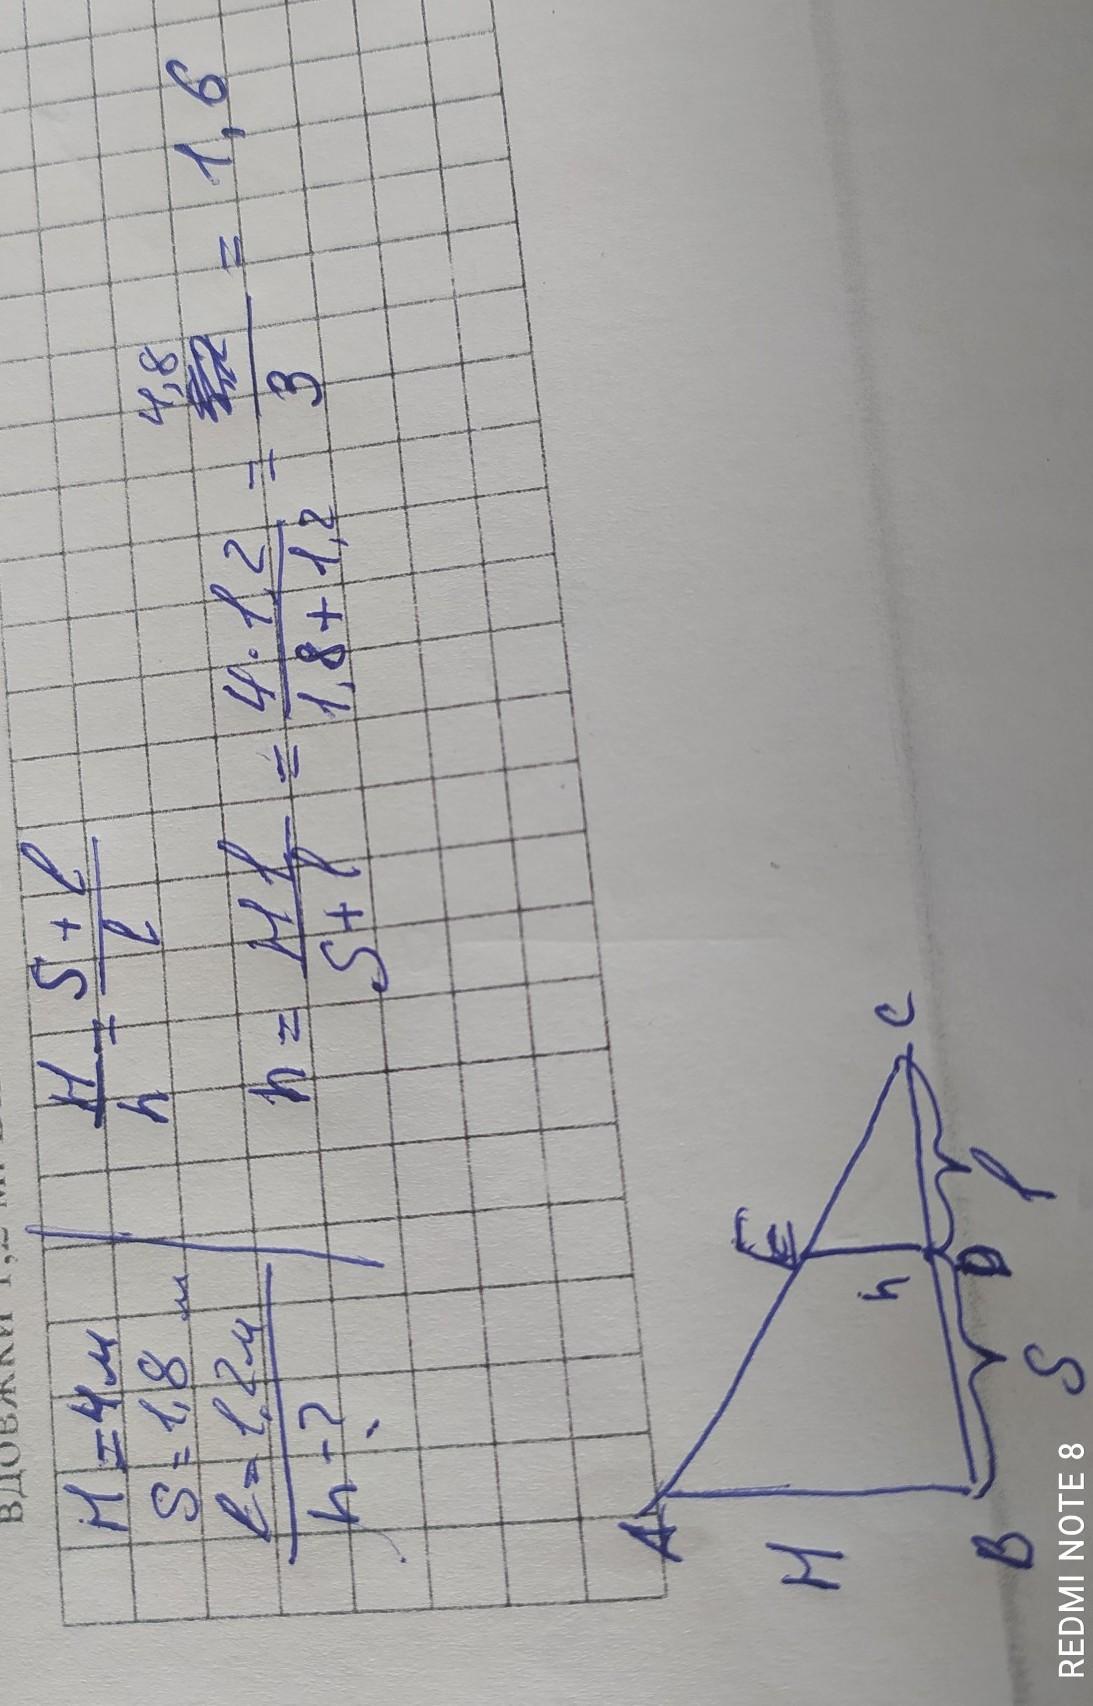 вдовжки 1,2 м.
H = 4 м
S = 1,8 м
l = 1,2 м
h - ?
H/h = S + l/l
h = H l/S + l = 4 · 1,2/1,8 + 1,2 = 4,8/3 = 1,6
A
E
C
H
h
B
D
S
l
REDMI NOTE 8